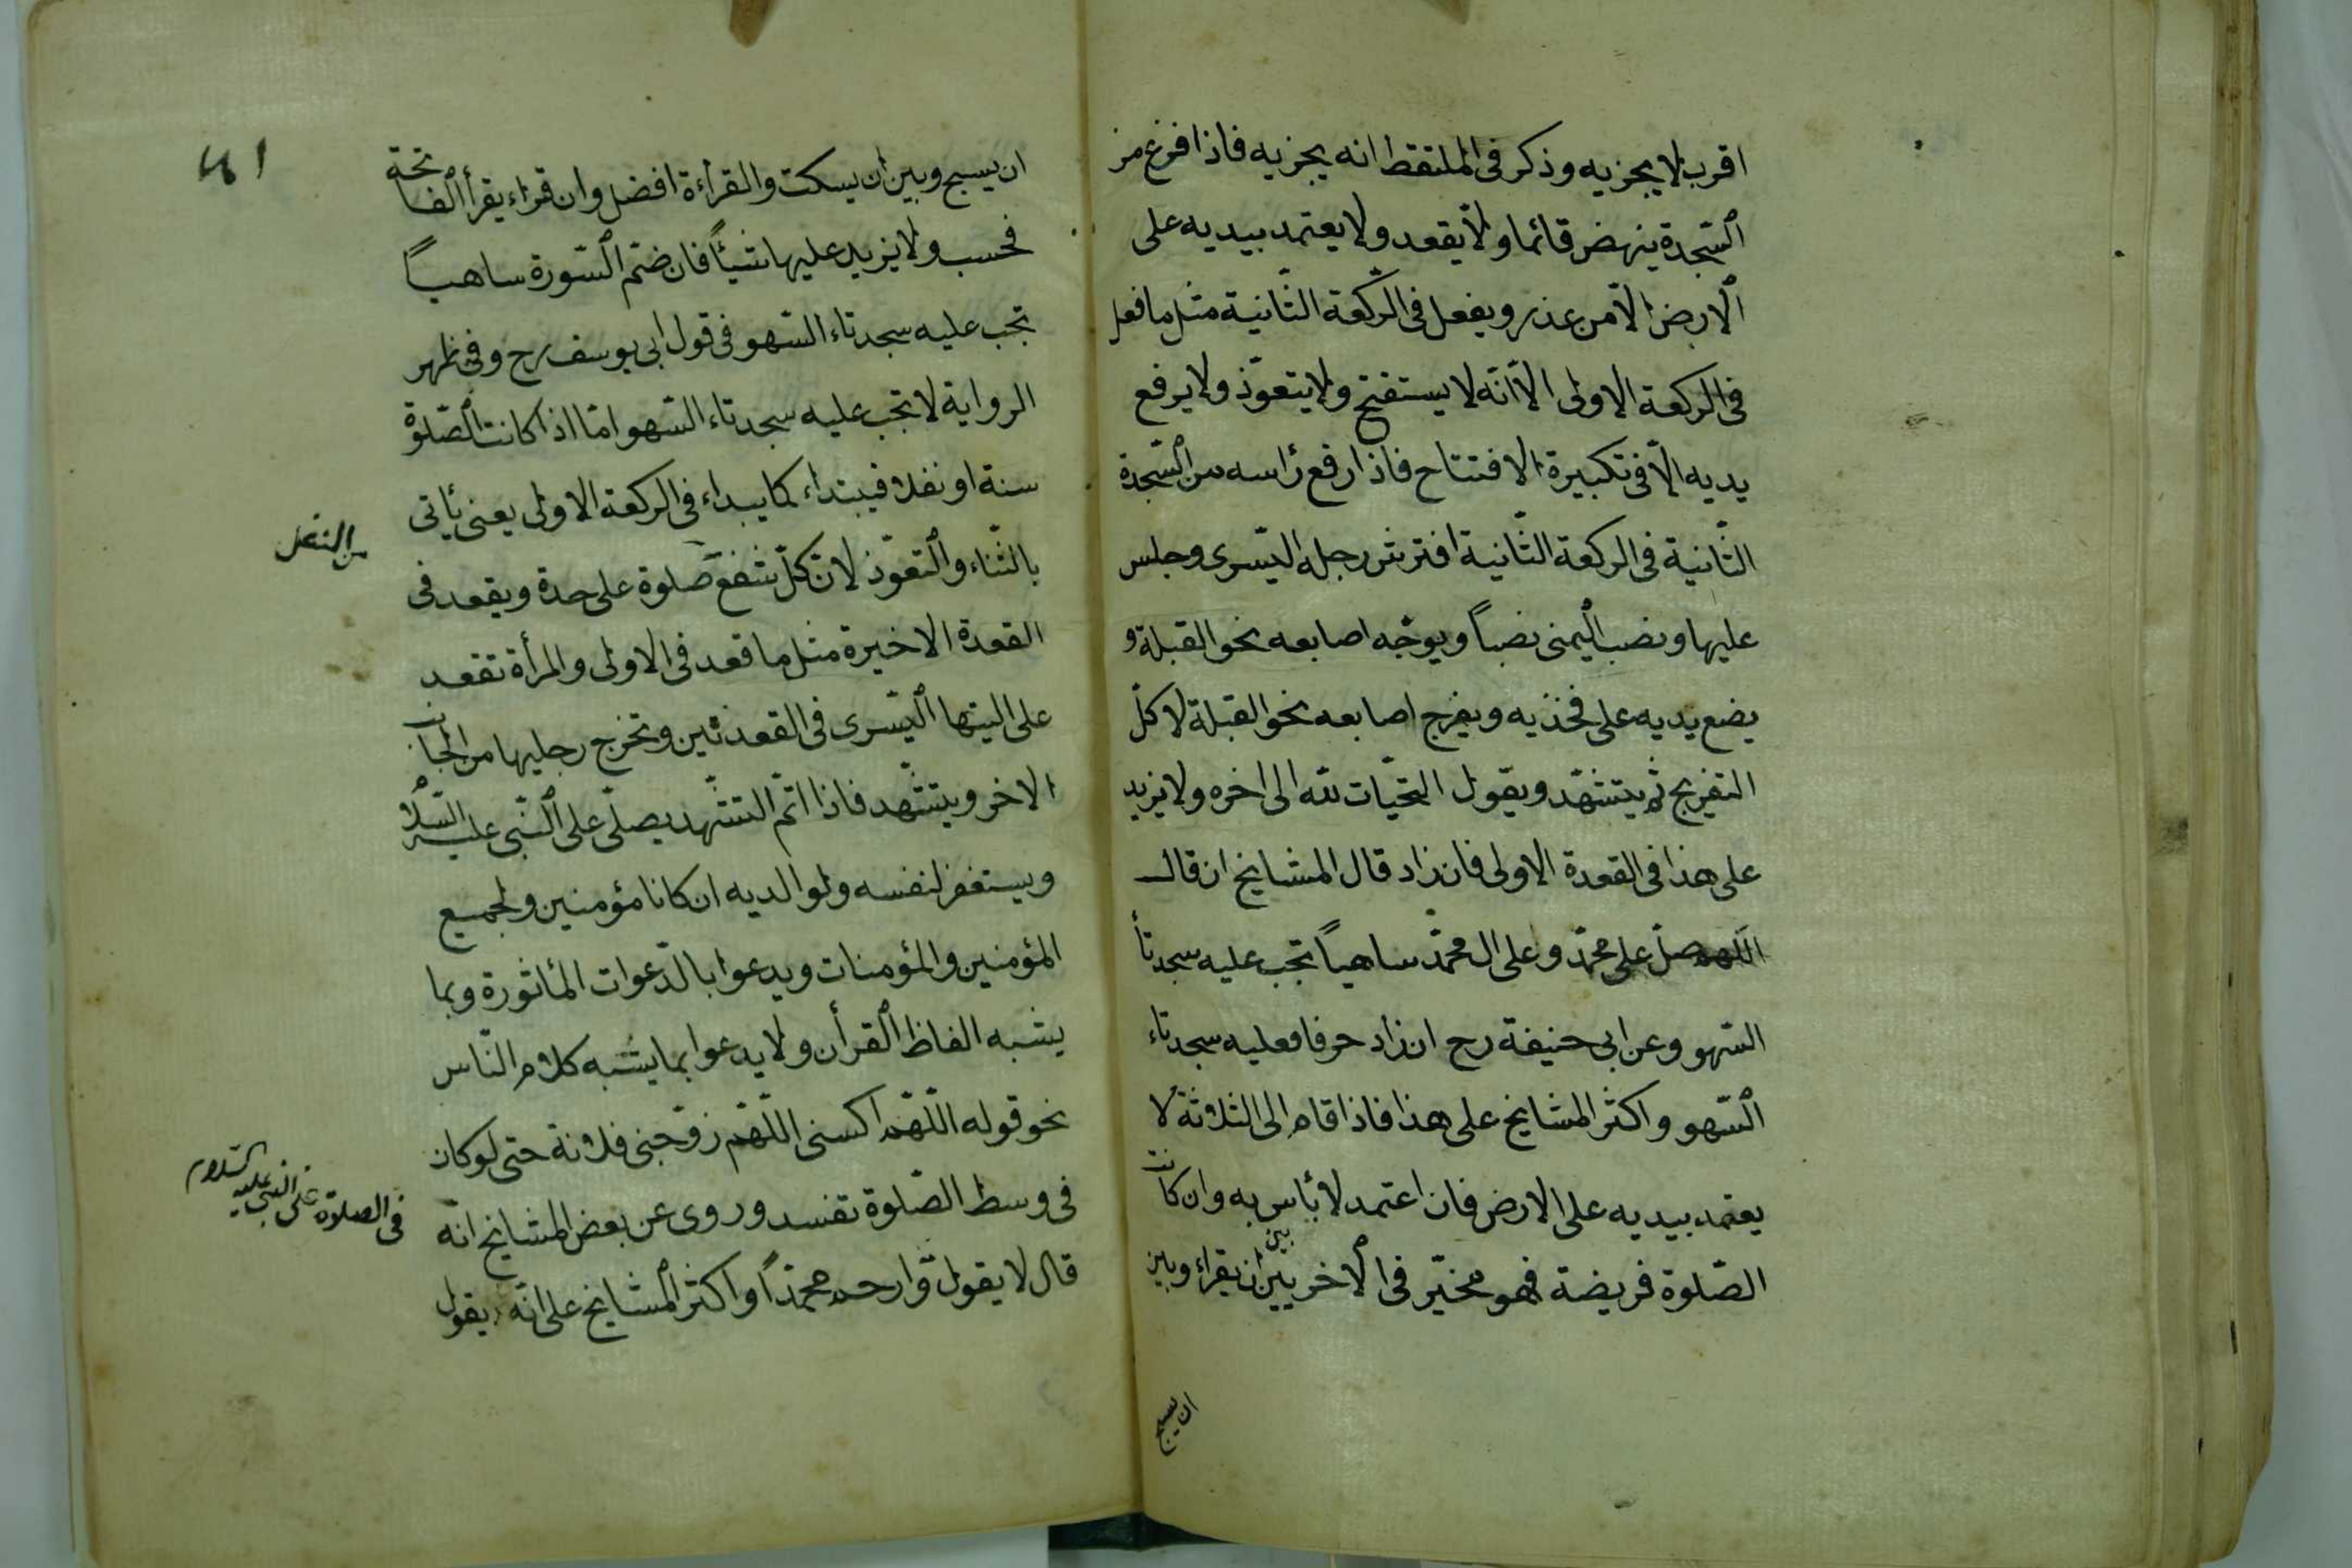 اقرب لا يجزيه وذكر فى الملتقط انه يجزيه فاذا فرغ من
السّجدة ينهض قائما ولا يقعد ولا يعتمد بيديه على
الارض الاّ من عذر ويفعل فى الرّكعة الثّانية مثل ما فعل
فى الركعة الاولى الاّ انّه لا يستفتح ولا يتعوّذ ولا يرفع
يديه الاّ فى تكبيرة الافتتاح فاذا رفع رأسه من السّجدة
الثّانية فى الركعة الثّانية افترش رجله اليسرى وجلس
عليها ونصب اليمنى نصباً ويوجّه اصابعه نحو القبلة و
يضع يديه على فخذيه ويفرج اصابعه نحو القبلة لا كلّ
التفريج ثم يتشهّد ويقول التحيّات لله الى اخره ولا يزيد
على هذا فى القعدة الاولى فان زاد قال المشايخ ان قال
اللهم صلّ على محمّد وعلى ال محمّد ساهياً تجب عليه سجدتأ
السّهو وعن ابى حنيفة رح ان زاد حرفا فعليه سجدتاء
السّهو واكثر المشايخ على هذا فاذا قام الى الثلاثة لا
يعتمد بيديه على الارض فان اعتمد لا بأس به وان كانت
الصّلوة فريضة فهو مخيّر فى الاخريين بين ان يقراء وبين
ان يسبح
ان يسبح وبين ان يسكت والقرأة افضل وان قراء يقرأ الفاتحة
فحسب ولا يزيد عليها شيئاً فان ضمّ السّورة ساهياً
تجب عليه سجدتاء السّهو فى قول ابى يوسف رح وفى ظهر
الرواية لا تجب عليه سجدتاء السّهو امّا اذا كانت الصّلوة
سنة او نفلا فيبتداء كما يبداء فى الركعة الاولى يعنى يأتى
من النفل
بالثّناء والتعوّذ لانّ كلّ شفع صلوة على حدة ويقعد فى
القعدة الاخيرة مثل ما قعد فى الاولى والمرأة تقعد
على اليتها اليسرى فى القعدتين وتخرج رجليها من الجانب
الاخر ويتشّهد فاذا اتمّ التشّهد يصلّى على النّبى عليه السّلام
ويستغفر لنفسه ولوالديه ان كانا مؤمنين ولجميع
المؤمنين والمؤمنات ويدعوا بالدّعوات المأثورة وبما
يشبه الفاظ القرأن ولا يدعوا بما يشبه كلام النّاس
نحو قوله اللّهم اكسنى اللّهم زوّجنى فلانة حتى لو كان
فى وسط الصّلوة تفسد وروى عن بعض المشايخ انّه
فى الصلوة على النبى عليه السلام
قال لا يقول وّارحم محمّداً واكثر المشايخ على انّه يقول